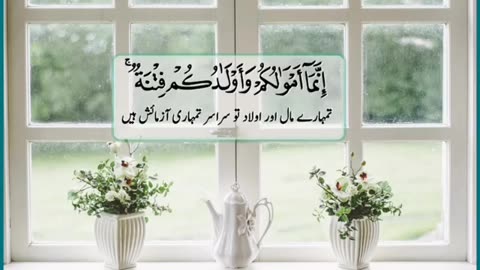 إِنَّمَآ أَمْوَٰلُكُمْ وَأَوْلَٰدُكُمْ فِتْنَةٌ ۚ
تمہارے مال اور اولاد تو سراسر تمہاری آزمائش ہیں